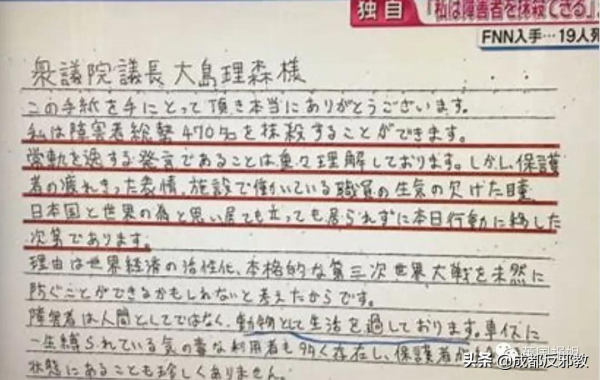 独自
「私は障害者を抹殺できる」
FNN入手…19人死
衆議院議長大島理森様
この手紙を手にとって頂き本当にありがとうございます。
私は障害者総勢470名を抹殺することができます。
常軌を逸する発言であることは重々理解しております。しかし、保護
者の疲れきった表情、施設で働いている職員の生気の欠けた瞳、
日本国と世界の為と思い居ても立っても居られずに本日行動に移した
次第であります。
理由は世界経済の活性化、本格的な第三次世界大戦を未然に
防ぐことができるかもしれないと考えたからです。
障害者は人間としてではなく、動物として生活を過しております。車イスに
一生縛られている気の毒な利用者も多く存在し、保護者が
状態にあることも珍しくありません。
英国报姐
头条 @成都反邪教